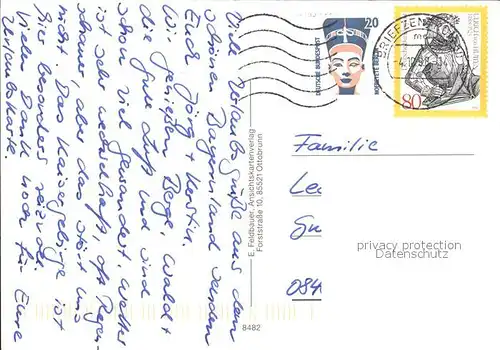 Viele Urlaubsgrüße aus dem
schönen Bayernland senden
Euch Jörg + Kerstin.
Wir genießen Berge, Wald +
die gute Luft und sind
schon viel gewandert. Wetter
ist sehr wechselhaft, oft Regen-
schauer, aber das stört uns
nicht. Das Kaisergebirge ist
hier besonders reizvoll.
Vielen Dank noch für Eure
Urlaubskarte.
E. Feldbauer, Ansichtskartenverlag
Forststraße 10, 85521 Ottobrunn
8482
DEUTSCHE BUNDESPOST
20
NOFRETETE BERLIN
BRIEFZENTRUM
80
Familie
Le
084
privacy protection
Datenschutz